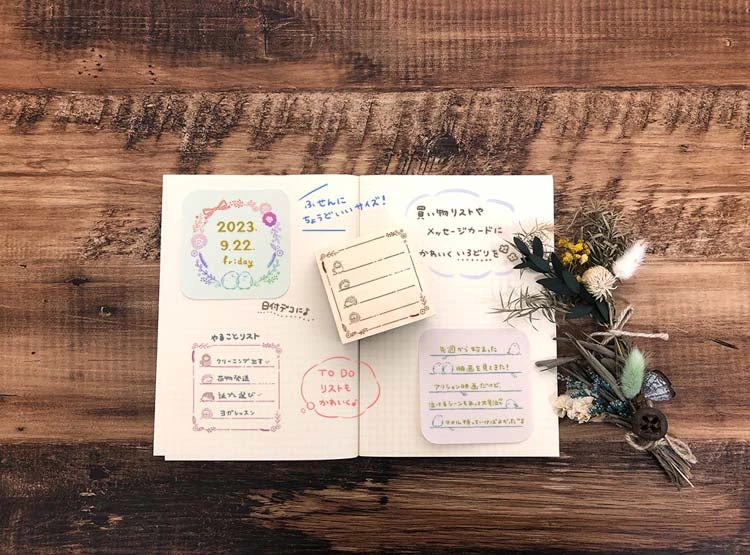 2023.
9.22.
friday
ふせんに
ちょうどいいサイズ!
日付デコに♪
やることリスト
クリーニング出す✓
荷物発送
ヨガレッスン
TO DO
リストも
かわいく♪
買い物リストや
メッセージカードに
かわいくいろどりを
今週から始まった
映画を見てきた!
アクション映画だけど、
泣けるシーンもあって大号泣